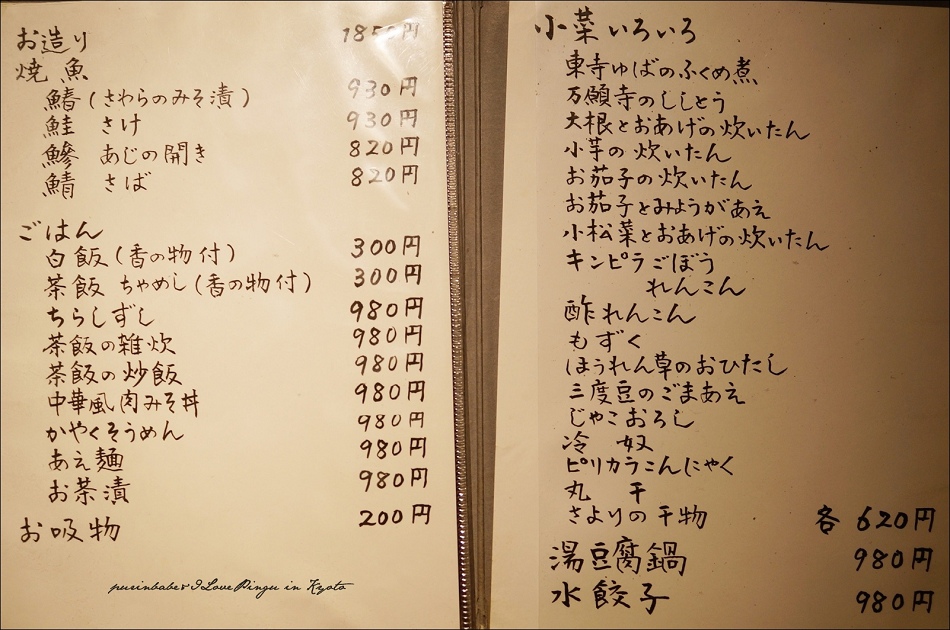 お造り 1850円
焼魚
鰆(さわらのみそ漬) 930円
鮭 さけ 930円
鰺 あじの開き 820円
鯖 さば 820円
ごはん
白飯(香の物付) 300円
茶飯 ちゃめし(香の物付) 300円
ちらしずし 980円
茶飯の雑炊 980円
茶飯の炒飯 980円
中華風肉みそ丼 980円
かやくそうめん 980円
あえ麺 980円
お茶漬 980円
お吸物 200円
purinbabe & I Love Pingu in Kyoto
小菜いろいろ
東寺ゆばのふくめ煮
万願寺のししとう
大根とおあげの炊いたん
小芋の炊いたん
お茄子の炊いたん
お茄子とみょうがあえ
小松菜とおあげの炊いたん
キンピラごぼう
れんこん
酢れんこん
もずく
ほうれん草のおひたし
三度豆のごまあえ
じゃこおろし
冷 奴
ピリカラこんにゃく
丸 干
さよりの干物 各 620円
湯豆腐鍋 980円
水餃子 980円